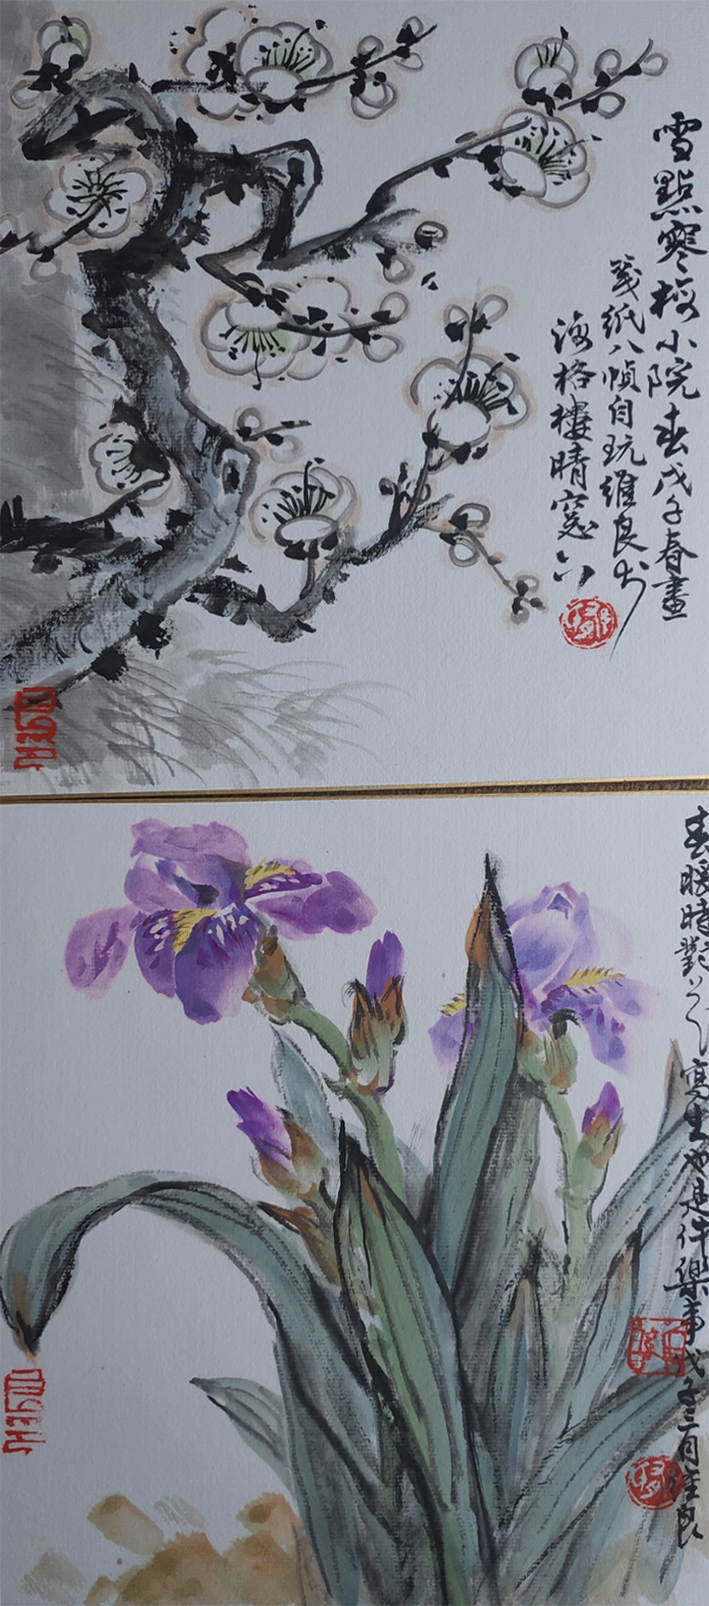 雪點寒梅小院春戊子春畫
箋紙八幀自玩維良於
海格樓晴窓下
春暖時對花寫生也是件樂事戊子三月維良